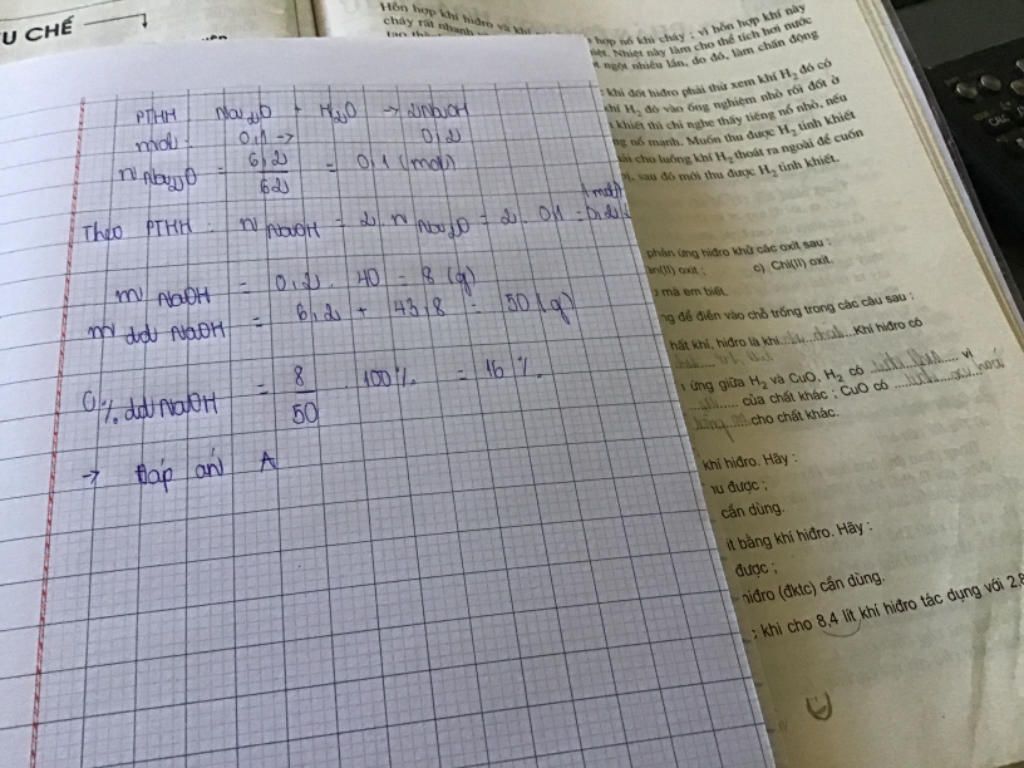 U CHẾ
Hỗn hợp khí hiđro và khí
hợp nổ khi cháy ; vì hỗn hợp khí này
cháy rất nhanh
iệt. Nhiệt này làm cho thể tích hơi nước
ngột nhiều lần, do đó, làm chấn động
khi đốt hiđro phải thử xem khí H₂ đó có
khí H₂ đó vào ống nghiệm nhỏ rồi đốt ở
khiết thì chỉ nghe thấy tiếng nổ nhỏ, nếu
nổ mạnh. Muốn thu được H₂ tinh khiết
cho luồng khí H₂ thoát ra ngoài để cuốn
sau đó mới thu được H₂ tinh khiết.
PTHH Na₂O + H₂O → 2NaOH
mol: 0,1 → 0,2
n Na₂O = 6,2 / 62 = 0,1 (mol)
Theo PTHH : n NaOH = 2. n Na₂O = 2. 0,1 = 0,2 (mol)
m NaOH = 0,2 . 40 = 8 (g)
m dd NaOH = 6,2 + 43,8 = 50 (g)
C% dd NaOH = 8 / 50 . 100% = 16 %
→ Đáp án A
phản ứng hiđro khử các oxit sau :
ân(II) oxit ; c) Chì(II) oxit.
mà em biết.
để điền vào chỗ trống trong các câu sau :
hất khí, hiđro là khí ... Khí hiđro có
ứng giữa H₂ và CuO, H₂ có ... vì
... của chất khác ; CuO có ...
... cho chất khác.
khí hiđro. Hãy :
u được ;
cần dùng.
it bằng khí hiđro. Hãy :
được ;
hiđro (đktc) cần dùng.
; khi cho 8,4 lít khí hiđro tác dụng với 2,8